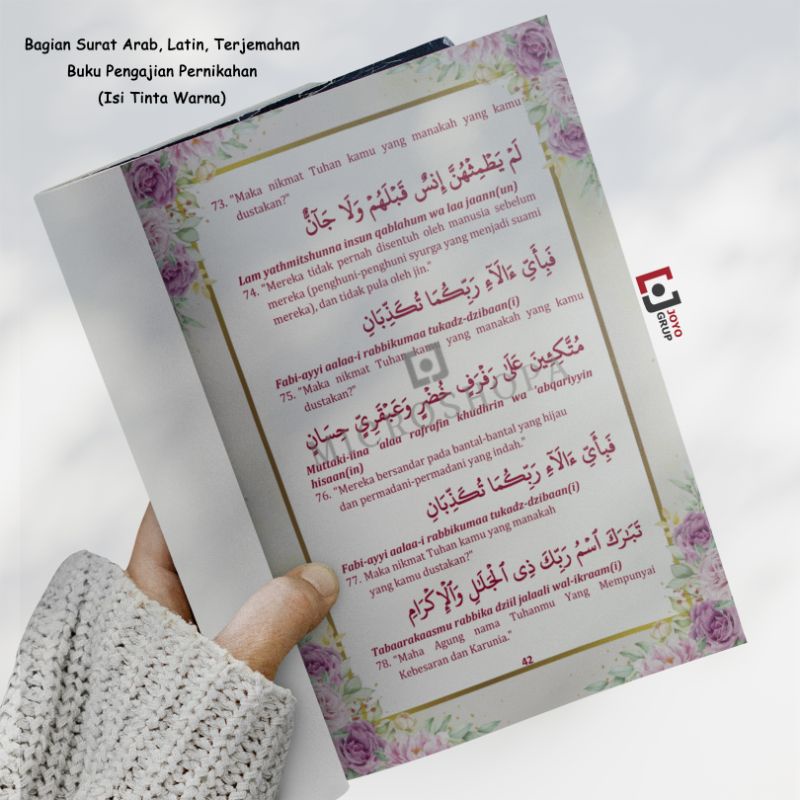 Bagian Surat Arab, Latin, Terjemahan
Buku Pengajian Pernikahan
(Isi Tinta Warna)
73. "Maka nikmat Tuhan kamu yang manakah yang kamu
dustakan?"
لَمْ يَطْمِثْهُنَّ إِنسٌ قَبْلَهُمْ وَلَا جَآنٌّ
Lam yathmitshunna insun qablahum wa laa jaann(un)
74. "Mereka tidak pernah disentuh oleh manusia sebelum
mereka (penghuni-penghuni syurga yang menjadi suami
mereka), dan tidak pula oleh jin."
فَبِأَيِّ ءَالَآءِ رَبِّكُمَا تُكَذِّبَانِ
Fabi-ayyi aalaa-i rabbikumaa tukadz-dzibaan(i)
75. "Maka nikmat Tuhan kamu yang manakah yang kamu
dustakan?"
مُتَّكِـِٔينَ عَلَىٰ رَفْرَفٍ خُضْرٍ وَعَبْقَرِيٍّ حِسَانٍ
Muttaki-iina 'alaa rafrafin khudhrin wa 'abqariyyin
hisaan(in)
76. "Mereka bersandar pada bantal-bantal yang hijau
dan permadani-permadani yang indah."
فَبِأَيِّ ءَالَآءِ رَبِّكُمَا تُكَذِّبَانِ
Fabi-ayyi aalaa-i rabbikumaa tukadz-dzibaan(i)
77. Maka nikmat Tuhan kamu yang manakah
yang kamu dustakan?"
تَبَٰرَكَ ٱسْمُ رَبِّكَ ذِى ٱلْجَلَٰلِ وَٱلْإِكْرَامِ
Tabaarakaasmu rabbika dziil jalaali wal-ikraam(i)
78. "Maha Agung nama Tuhanmu Yang Mempunyai
Kebesaran dan Karunia."
42
MICROSHOPA
JOYO
GRUP